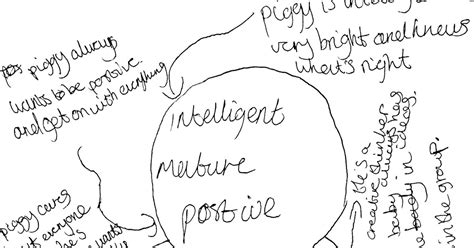 piggy is
very bright and knows
what's right
pos piggy always
wants to be positive
and get on with everything
intelligent
mature
positive
He's a
creative thinker
always has
in ideas
in the group.
piggy cares
everyone
he's
wants